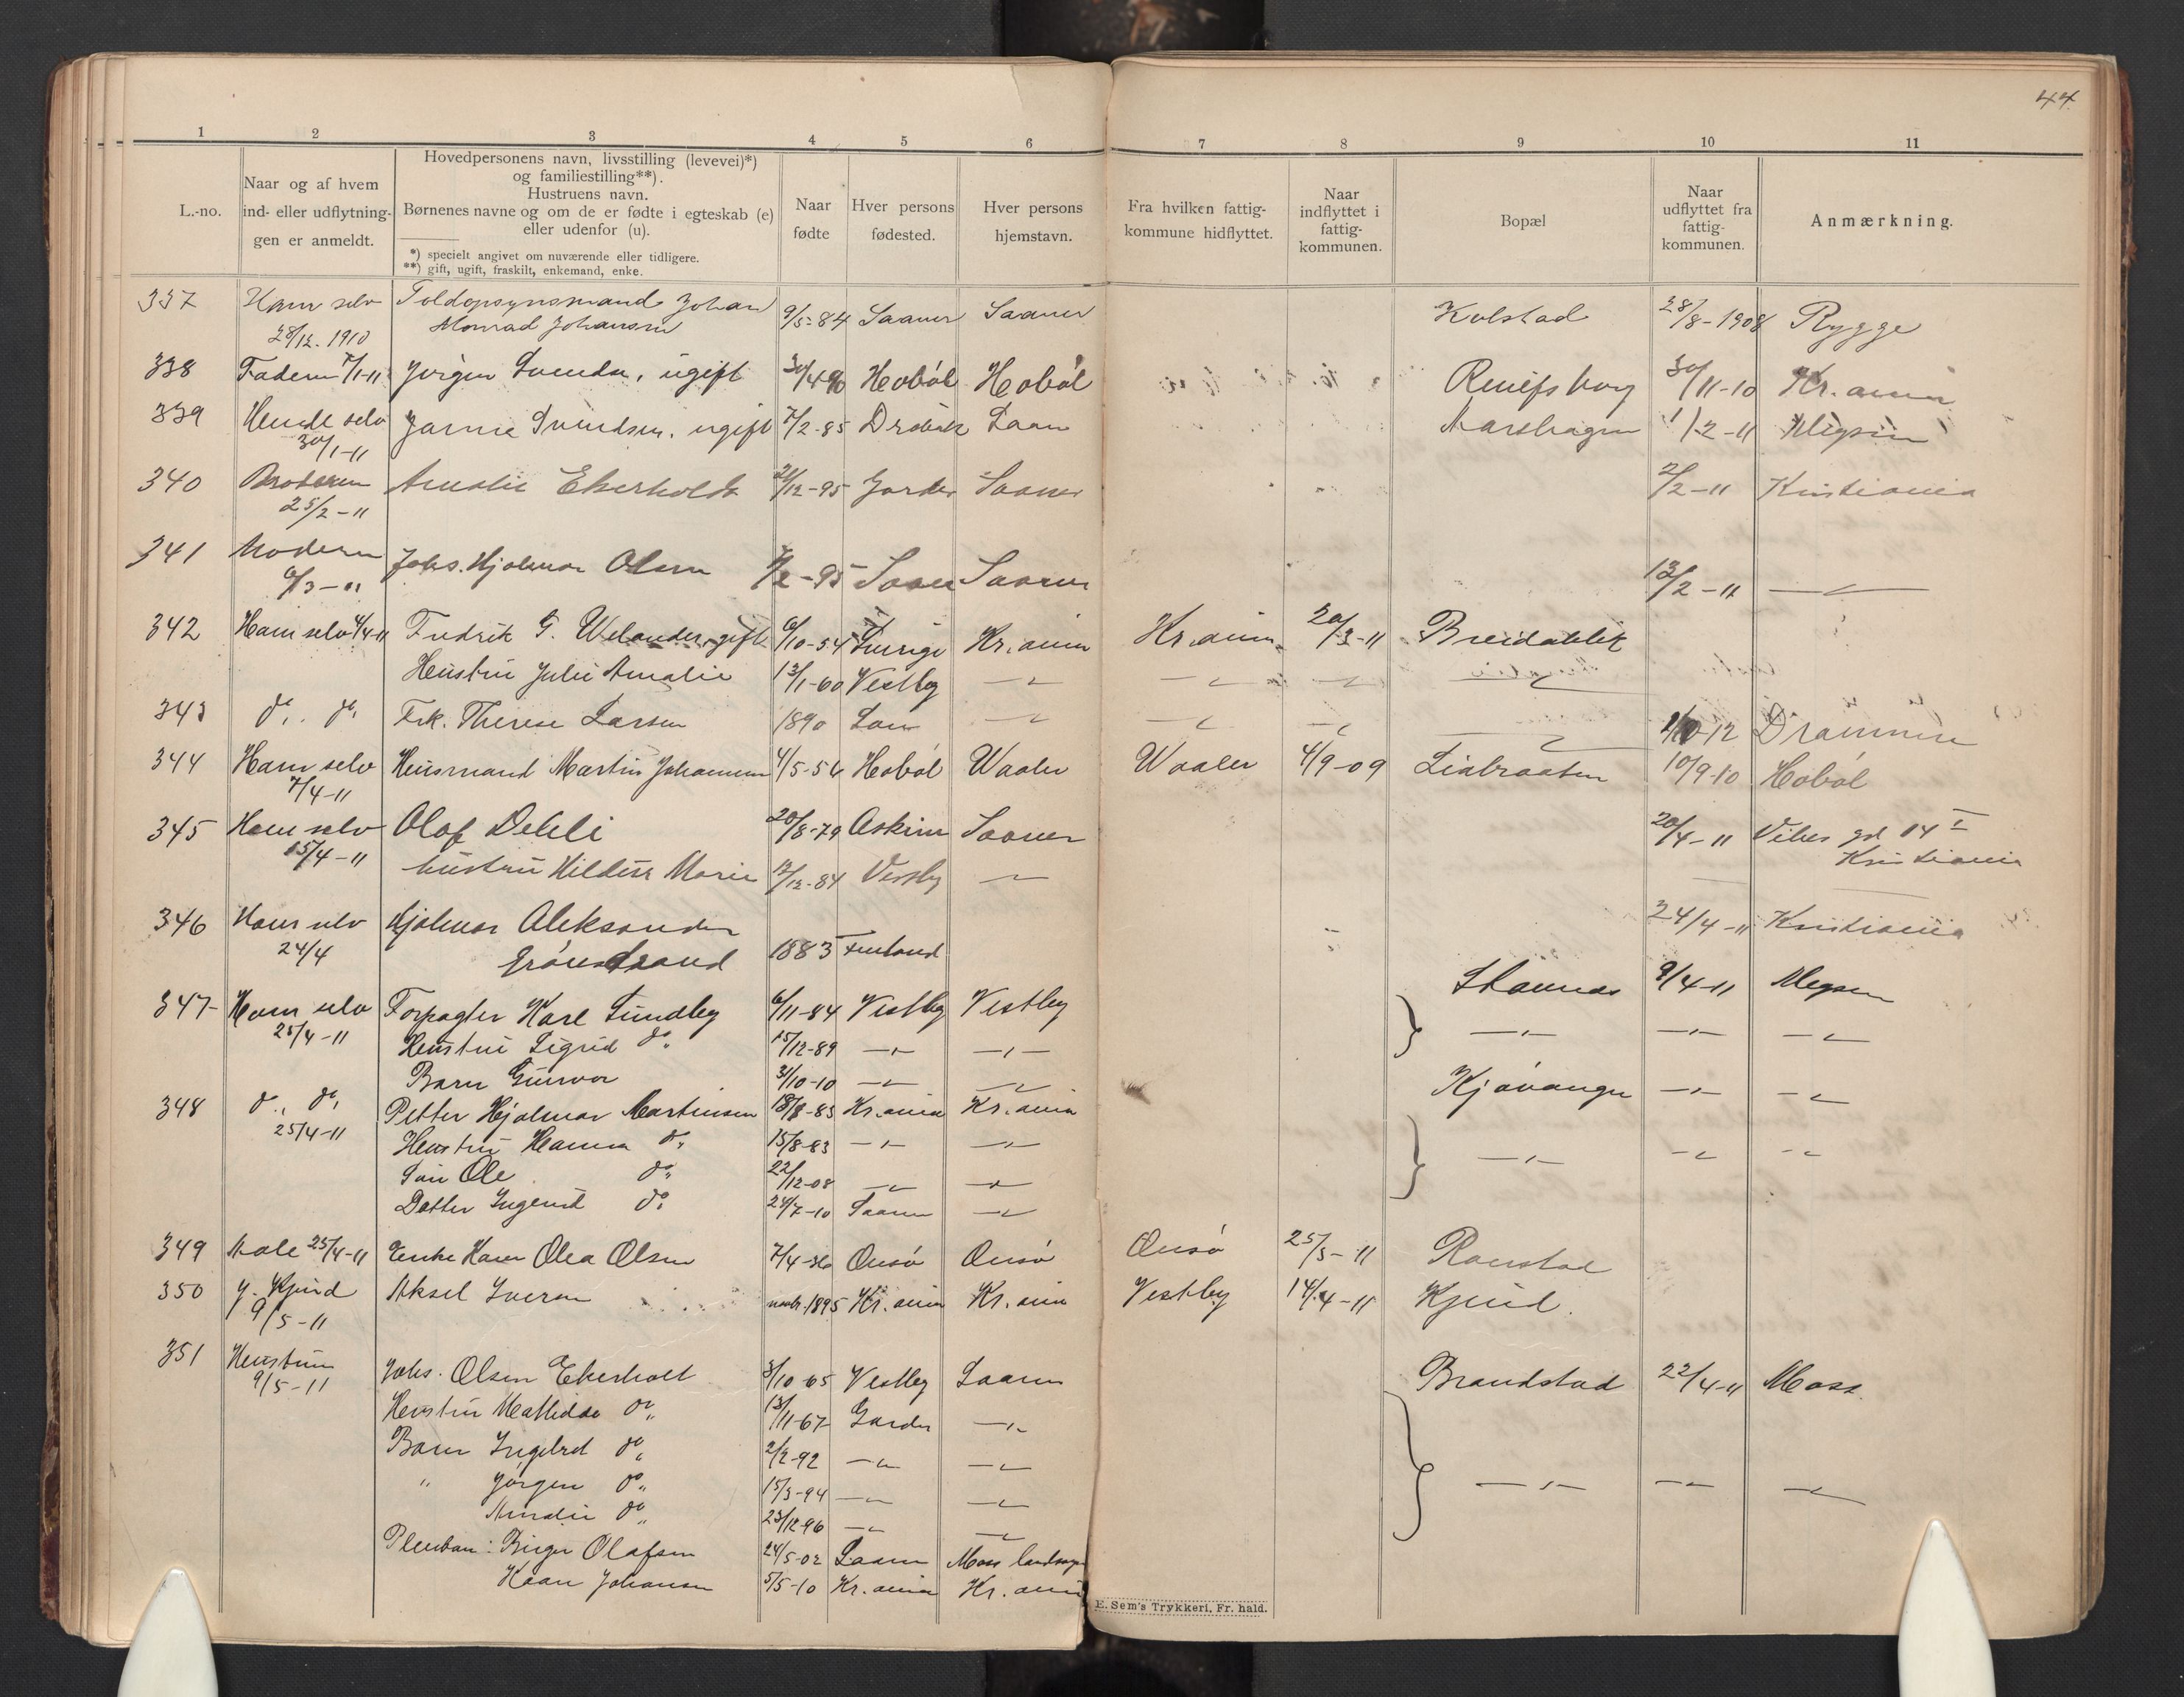 44
1 2 3 4 5 6 7 8 9 10 11
L.-no.
Naar og af hvem
ind- eller udflytnin-
gen er anmeldt.
Hovedpersonens navn, livsstilling (levevei)*)
og familiestilling**).
Hustruens navn.
Børnenes navne og om de er fødte i egteskab (e)
eller udenfor (u).
*) specielt angivet om nuværende eller tidligere.
**) gift, ugift, fraskilt, enkemand, enke.
Naar
fødte
Hver persons
fødested.
Hver persons
hjemstavn.
Fra hvilken fattig-
kommune hidflyttet.
Naar
indflyttet i
fattig-
kommunen.
Bopæl
Naar
udflyttet fra
fattig-
kommunen.
Anmærkning.
337 Ham selv Toldopsynsmand Johan 9/5-84 Saaner Saaner Kolstad 28/8-1908 Rygge
28/12. 1910 Monrad Johansen
338 Faderen 7/1-11 Jørgen Svendsen, ugift 30/4-90 Hobøl Hobøl 30/11-10 Kr.ania
339 Hende selv Svendsen, ugift 7/2-85 Drøbak Saan 1/2-11
30/1-11
340 Broderen Amalie Ekerholt 21/12-95 Garder Saaner 2/2-11 Kristiania
25/2-11
341 Moderen Johs. Hjalmar Olsen /2-95 Saaner Saaner 13/2-11 —"—
6/3-11
342 Ham selv 4/4-11 Fredrik G. Welander, gift 6/10-54 Sverige Kr.ania Kr.ania 20/3-11 Breidablik
Hustru Julie Amalie 13/1-60 Vestby —"— —"— —"— —"—
343 do. do. Frk. Therese Larsen 1890 Saan —"— —"— —"— —"— -12 Drammen
344 Ham selv Husmand Martin Johannesen 4/5-54 Hobøl Waaler Waaler 4/9-09 Liabraaten 10/9-10 Hobøl
7/4-11
345 Ham selv Olaf Dehli 20/8-79 Askim Saaner 20/4-11 Vibes gd 14 I
15/4-11 Kristiania
hustru Marie 12/12-84 Vestby —"—
346 Ham selv Hjalmar Aleksander 24/4-11 Kristiania
24/4 Grönstrand 1883 Finland
347 Ham selv Forpagter Karl Sundby 6/11-84 Vestby Vestby Stamnes 9/4-11 Mysen
25/4-11 Hustru Sigrid do. 15/12-89 —"— —"— —"— —"— —"—
Barn Gunvor 31/10-10 —"— —"—
348 do. do. Petter Hjalmar Martinsen 18/8-83 Kr.ania Kr.ania Kjøvangen —"— —"—
25/4-11 Hustru Hanna do. 15/8-83 —"— —"— —"— —"— —"—
Søn Ole do. 22/12-08 —"— —"—
Datter Ingerid do. 24/7-10 Saaner —"—
349 25/4-11 Enke Karen Olea Olsen 7/4-36 Onsø Onsø Onsø 25/3-11 Ranstad
350 Aksel Iversen novbr. 1895 Kr.ania Kr.ania Vestby 14/4-11 Kjind.
9/5-11
351 Hustruen Johs. Olsen Ekerholt 3/10-65 Vestby Saaner Brandstad 22/4-11 Moss
9/5-11
Hustru Mathilde do. 13/11-67 Garder —"—
Barn Ingebret do. 2/2-92 —"— —"—
" Jørgen do. 15/3-94 —"— —"— —"— —"— —"—
Amalie do. 23/12-96 —"— —"—
Pleiebarn: Birger Olafsen 24/5-02 Saaner Moss landsogn
Johansen 5/5-10 Kr.ania Kr.ania
E. Sem's Trykkeri, Fr. hald.